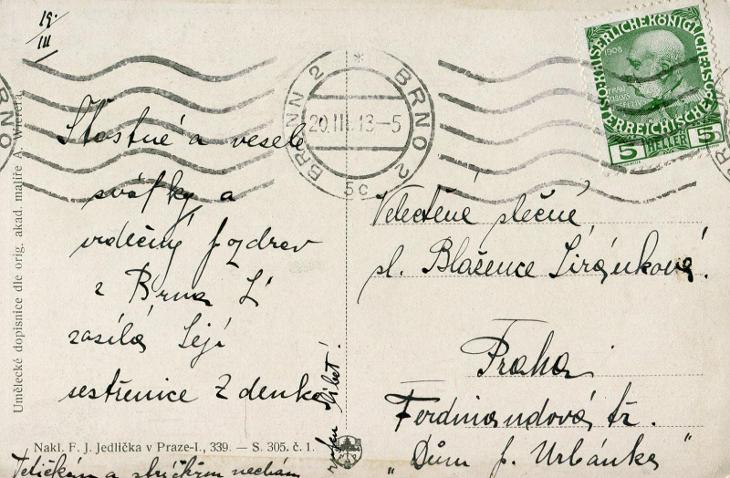 19.
III
Šťastné a veselé
svátky a
vděčný pozdrav
z Brna
zasílá Její
sestřenice Zdenka
Tetičkám a strýčkům nechám
Nakl. F. J. Jedlička v Praze-I., 339. — S. 305. č. 1.
Umělecké dopisnice dle orig. akad. malíře A. Wierera.
BRÜNN 2 * BRNO 2
20.III.13-5
5c
BRNO
1908
KAISERLICHE KÖNIGLICHE
ÖSTERREICHISCHE
5 HELLER 5
Velectěné slečně
sl. Blažence Siránkové
Praha
Ferdinandová tř.
"Dům p. Urbánka"